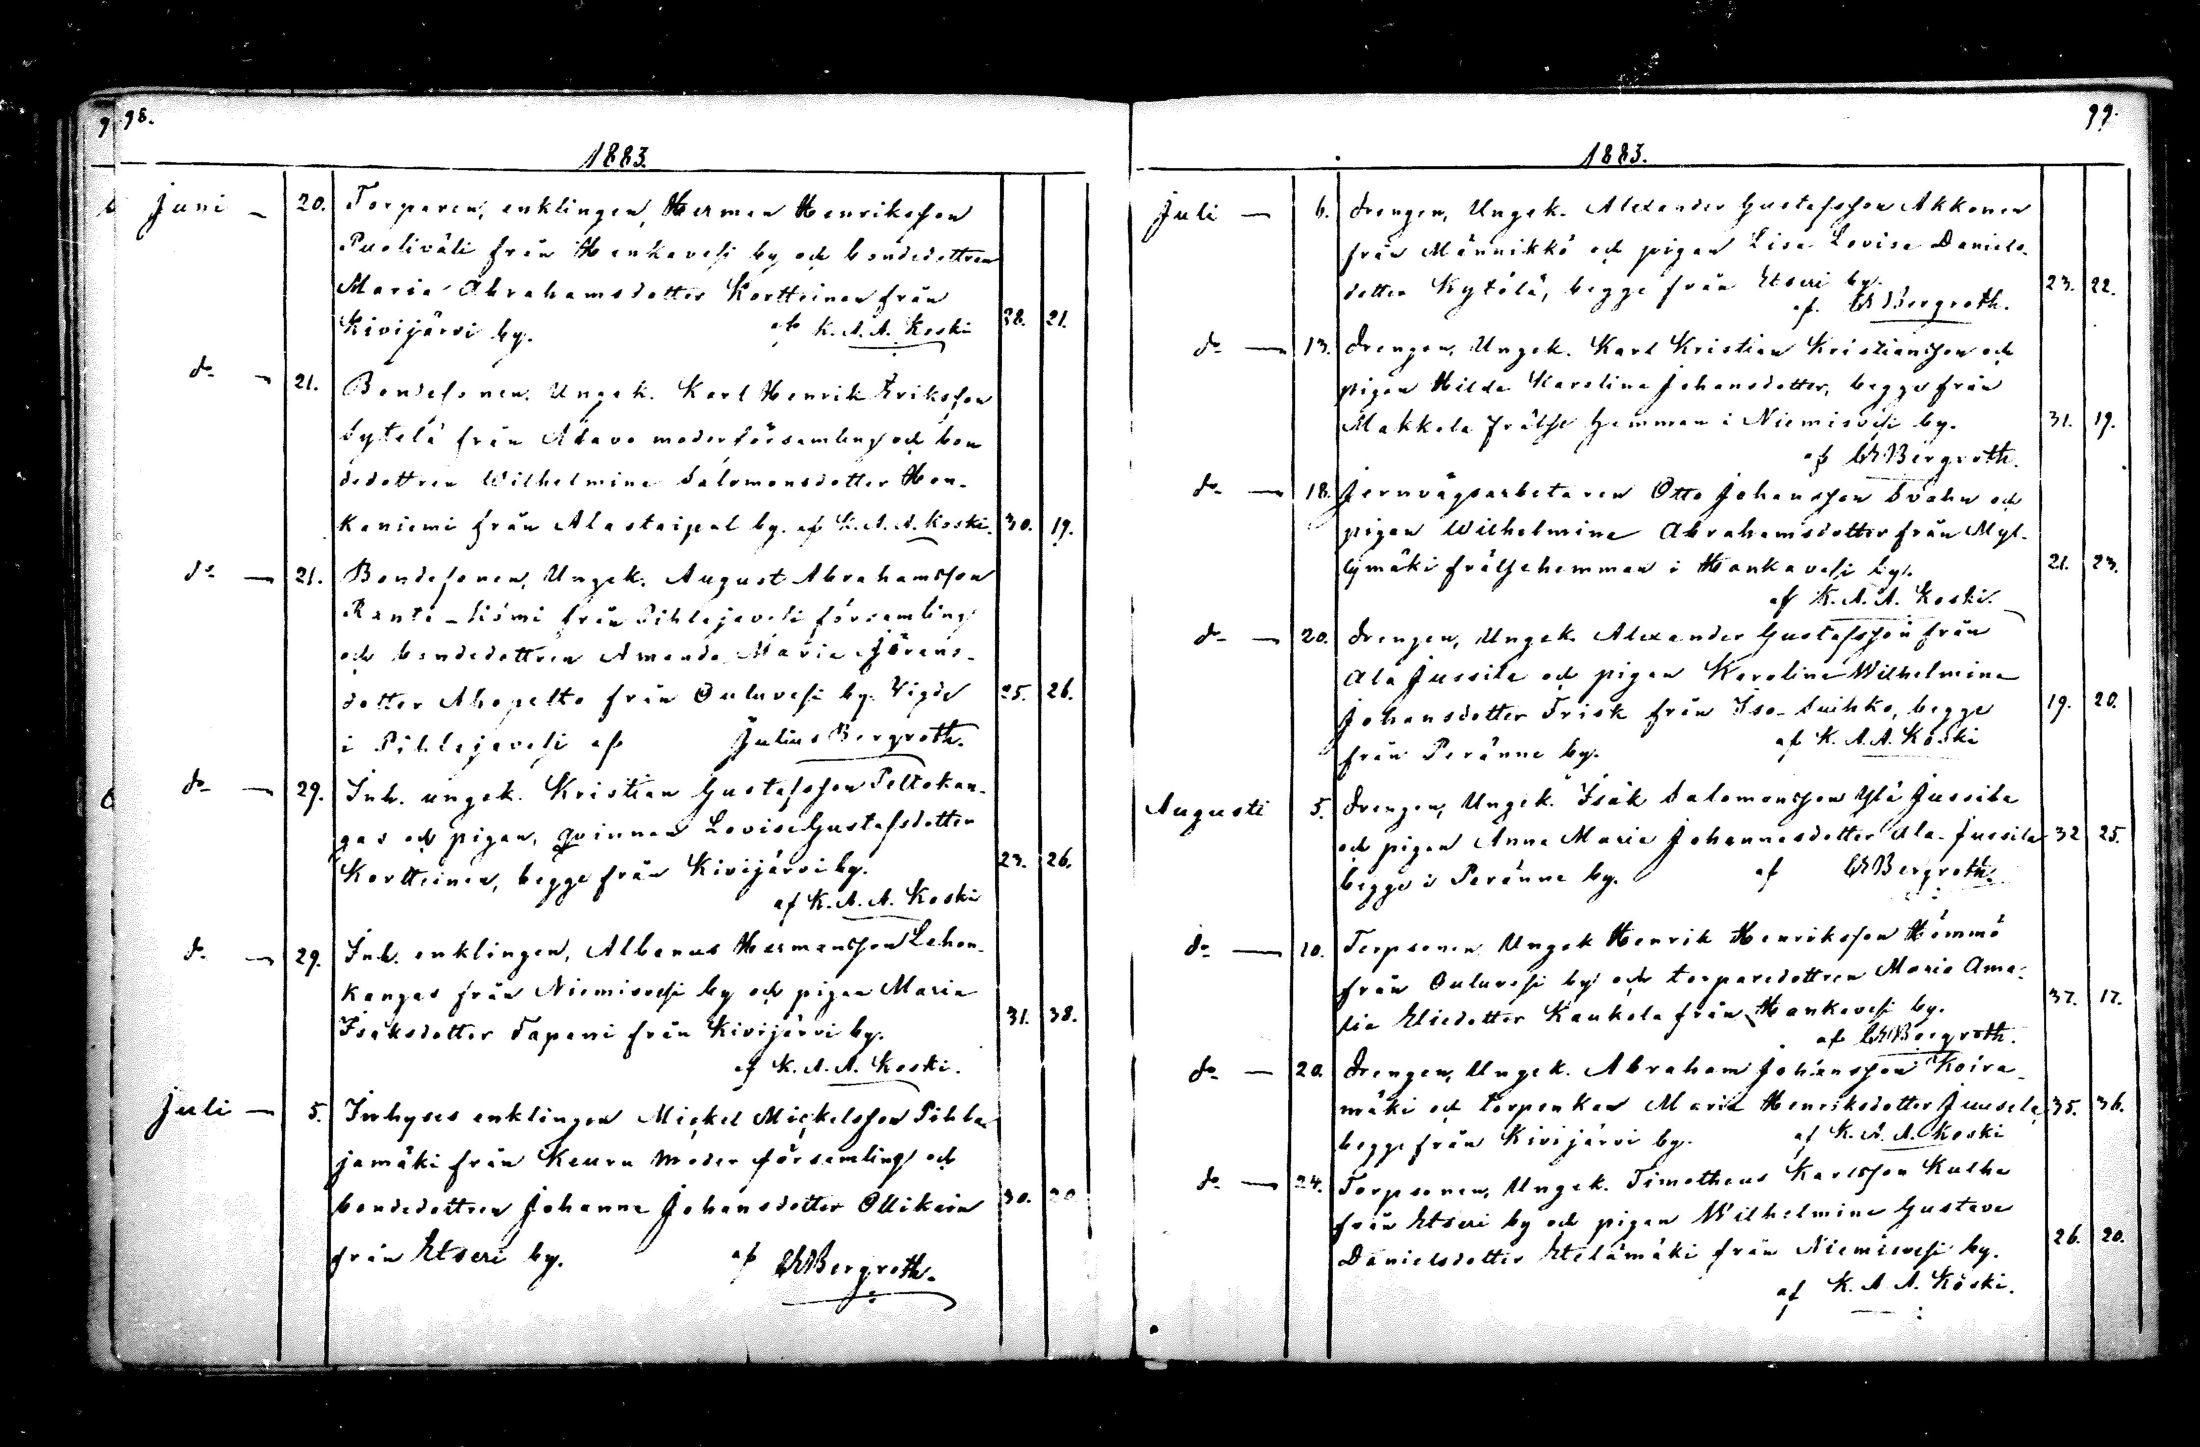 98.
1883.
Juni - 20. Torparen, enklingen, Herman Henriksson
Puoliväli från Hankavesi by och bondedottren
Maria Abrahamsdotter Kortteinen från
Kivijärvi by. af K. A. A. Koski 38. 21.
do - 21. Bondesonen, Ungk. Karl Henrik Eriksson
från Alavo moderförsamling och bon
dedottren Wilhelmina Salomonsdotter Hon-
kaniemi från Alastaipal by. af K. A. A. Koski. 30. 19.
do - 21. Bondesonen, Ungk. August Abrahamsson
Ranta - från Pihlajavesi församling
och bondedottren Amanda Maria Görans-
dotter Ahopelto från Ouluvesi by. Vigde 25. 26.
i Pihlajavesi af Julius Bergroth.
do - 29. Inh. ungk. Kristian Gustafsson Peltokan-
gas och pigan, qvinnan Lovisa Gustafsdotter
Kortteinen, begge från Kivijärvi by. 23. 26.
af K. A. A. Koski
do - 29. Inh. enklingen, Albanus Hermansson Lehon-
kangas från Niemisvesi by och pigan Maria
Isaksdotter Tapani från Kivijärvi by. 31. 38.
af K. A. A. Koski.
Juli - 5. Inhyses enklingen Mickel Mickelsson Pihla
jamäki från Keuru moder församling och
bondedottren Johanna Johansdotter Ollikain 30. 20
från Etseri by. af Bergroth.
99.
1883.
Juli - 6. Drengen, Ungk. Alexander Gustafsson Akkonen
från Männikkö och pigan Lisa Lovisa Daniels-
dotter Kytölä, begge från Etseri by. 23. 22.
af Bergroth.
do - 13. Drengen, Ungk. Karl Kristian Kristiansson och
pigan Hilda Karolina Johansdotter, begge från
Makkola frälse hemman i Niemisvesi by. 31. 19.
af Bergroth.
do - 18. Jernvägsarbetaren Otto Johansson Svahn och
pigan Wilhelmina Abrahamsdotter från Myl-
lymäki frälsehemman i Hankavesi by. 21. 23.
af K. A. A. Koski.
do - 20. Drengen, Ungk. Alexander Gustafsson från
Ala Jussila och pigan Karolina Wilhelmina
Johansdotter Frisk från Iso- Suihko, begge 19. 20.
från Peränne by. af K. A. A. Koski
Augusti 5. Drengen, Ungk. Isak Salomonsson Ylä Jussila
och pigan Anna Maria Johannesdotter Ala- Jussila 32 25.
begge i Peränne by. af Bergroth.
do - 10. Torpsonen Ungk Henrik Henriksson Hömmö
från Ouluvesi by och torparedottren Maria Ama-
lia Eliedotter Kaukola från Hankavesi by. 37. 17.
af Bergroth.
do - 20. Drengen, Ungk. Abraham Johansson Koira-
mäki och torpenkan Maria Henriksdotter Juusela 35. 36.
begge från Kivijärvi by. af K. A. A. Koski
do - 24. Torpsonen, Ungk. Timotheus Karlsson Kulha
från Etseri by och pigan Wilhelmina Gustava
Danielsdotter Etelämäki från Niemisvesi by. 26. 20.
af K. A. A. Koski.